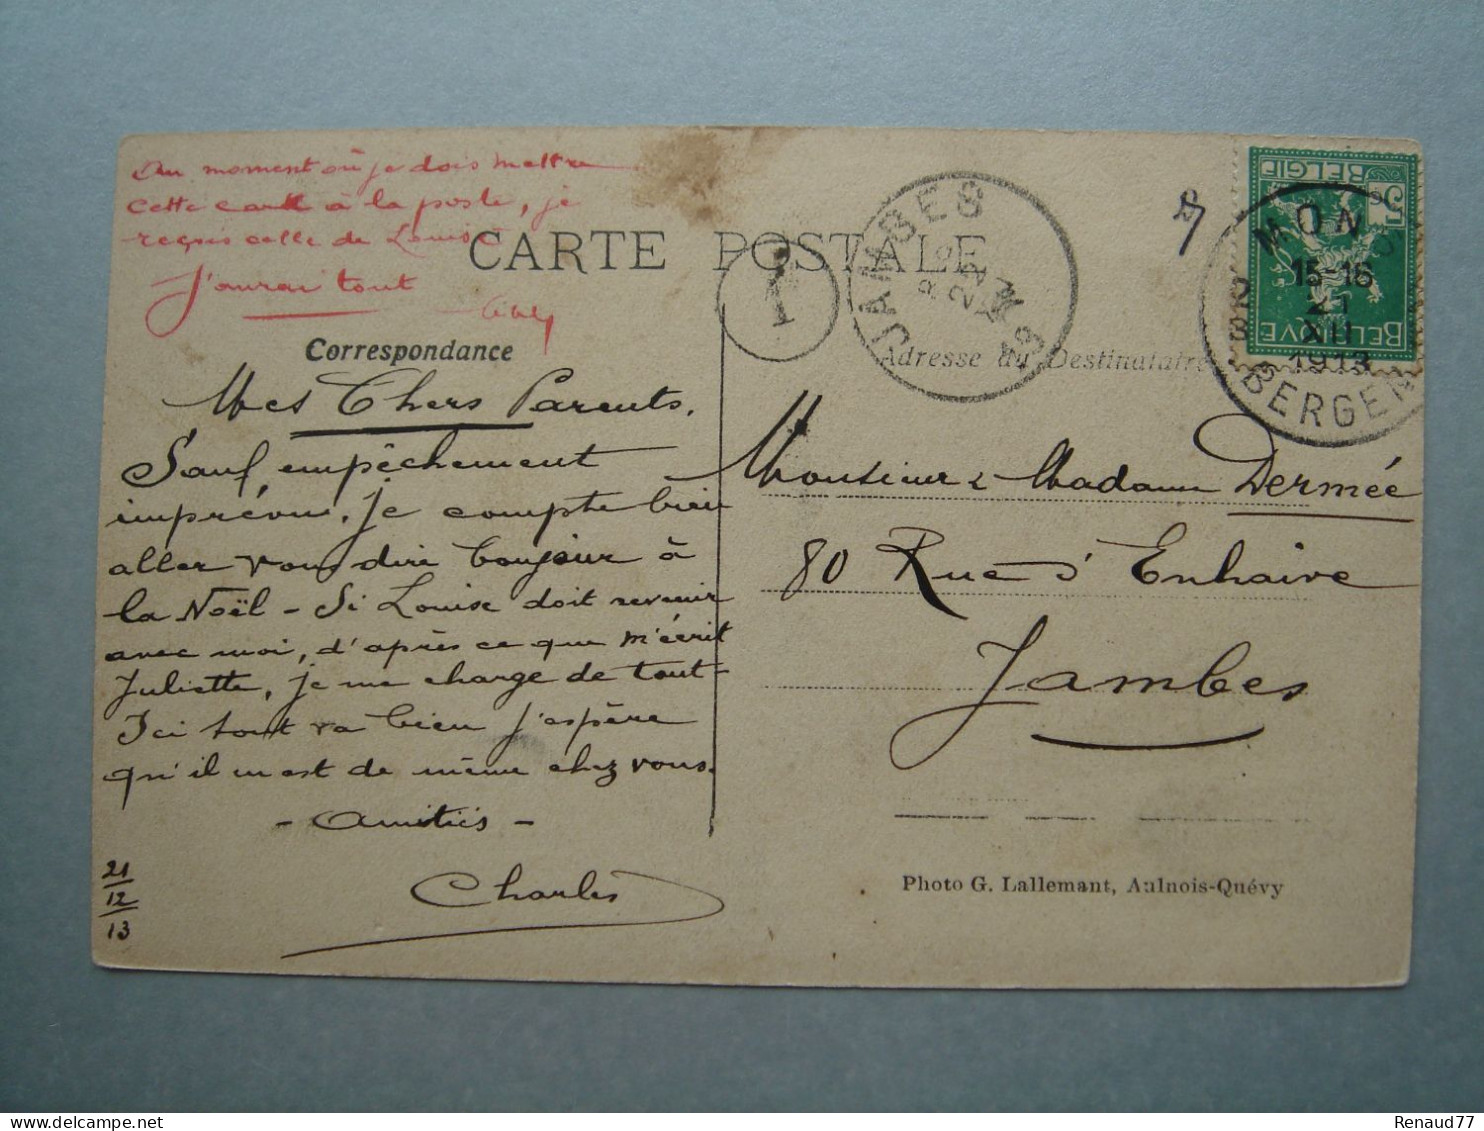 Au moment où je dois mettre
cette carte à la poste, je
reçois celle de Louise
J'aurai tout
CARTE POSTALE
Correspondance
Mes Chers Parents.
Sauf empêchement
imprévu, je compte bien
aller vous dire bonjour à
la Noël - Si Louise doit revenir
avec moi, d'après ce que m'écrit
Juliette, je me charge de tout -
Ici tout va bien j'espère
qu'il en est de même chez vous.
- Amitiés -
Charles
21
12
13
1
JAMBES
BELGIE
5
BELGIQUE
MONS
15-16
21
XII
1913
BERGEN
Adresse du Destinataire
Monsieur & Madame Dermée
80 Rue d'Enhaive
Jambes
Photo G. Lallemant, Aulnois-Quévy
Renaud77